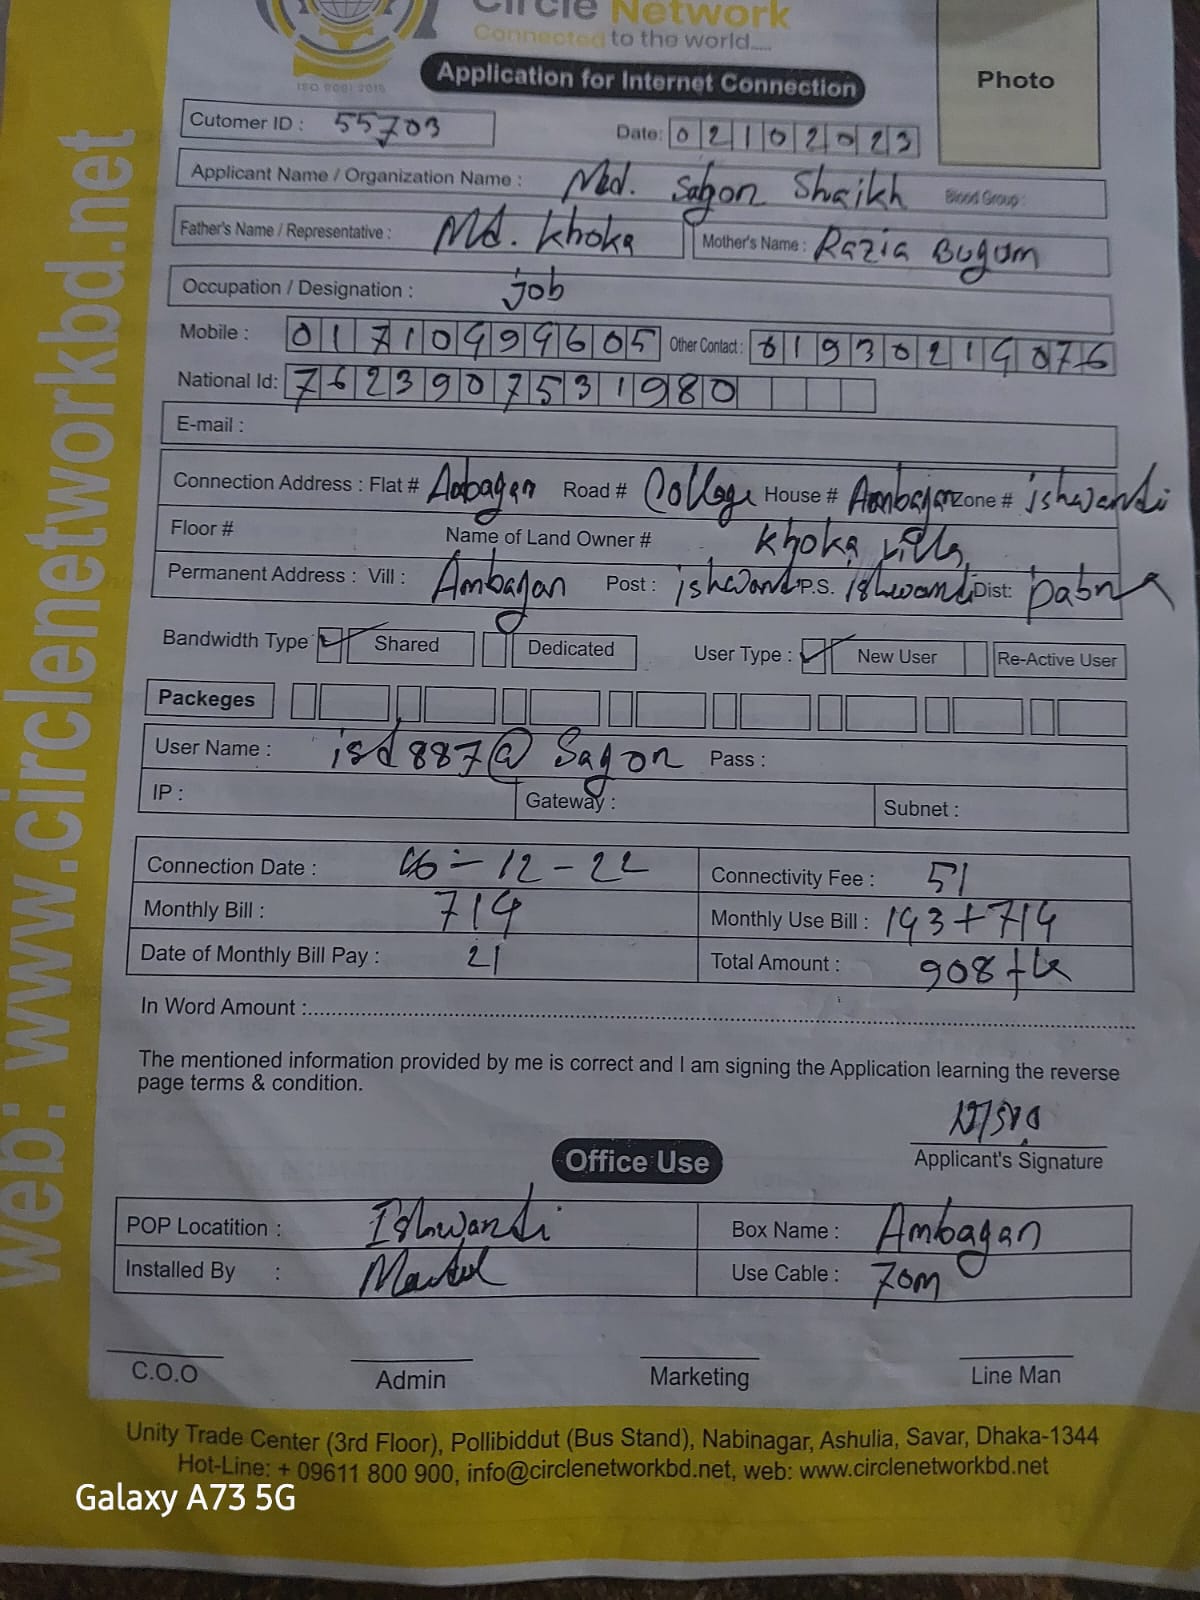 Circle Network
Connected to the world.....
ISO 9001:2015
Application for Internet Connection
Photo
Cutomer ID : 55703
Date: 02102023
Applicant Name / Organization Name : Md. Sagon Shaikh Blood Group :
Father's Name / Representative : Md. Khoka Mother's Name : Razia Bugum
Occupation / Designation : job
Mobile : 01710999605 Other Contact : 01930219076
National Id: 7623907531980
E-mail :
Connection Address : Flat # Ambagan Road # College House # Ambagan Zone # ishwardi
Floor # Name of Land Owner # Khoka villa
Permanent Address : Vill : Ambagan Post : ishwardi P.S. ishwardi Dist: pabna
Bandwidth Type Shared Dedicated User Type : New User Re-Active User
Packeges
User Name : isd887@Sagon Pass :
IP : Gateway : Subnet :
Connection Date : 06-12-22 Connectivity Fee : 51
Monthly Bill : 714 Monthly Use Bill : 193+714
Date of Monthly Bill Pay : 21 Total Amount : 908 tk
In Word Amount :
The mentioned information provided by me is correct and I am signing the Application learning the reverse
page terms & condition.
Applicant's Signature
Office Use
POP Locatition : Ishwardi Box Name : Ambagan
Installed By : Use Cable : 70m
C.O.O Admin Marketing Line Man
Unity Trade Center (3rd Floor), Pollibiddut (Bus Stand), Nabinagar, Ashulia, Savar, Dhaka-1344
Hot-Line: + 09611 800 900, info@circlenetworkbd.net, web: www.circlenetworkbd.net
web: www.circlenetworkbd.net
Galaxy A73 5G